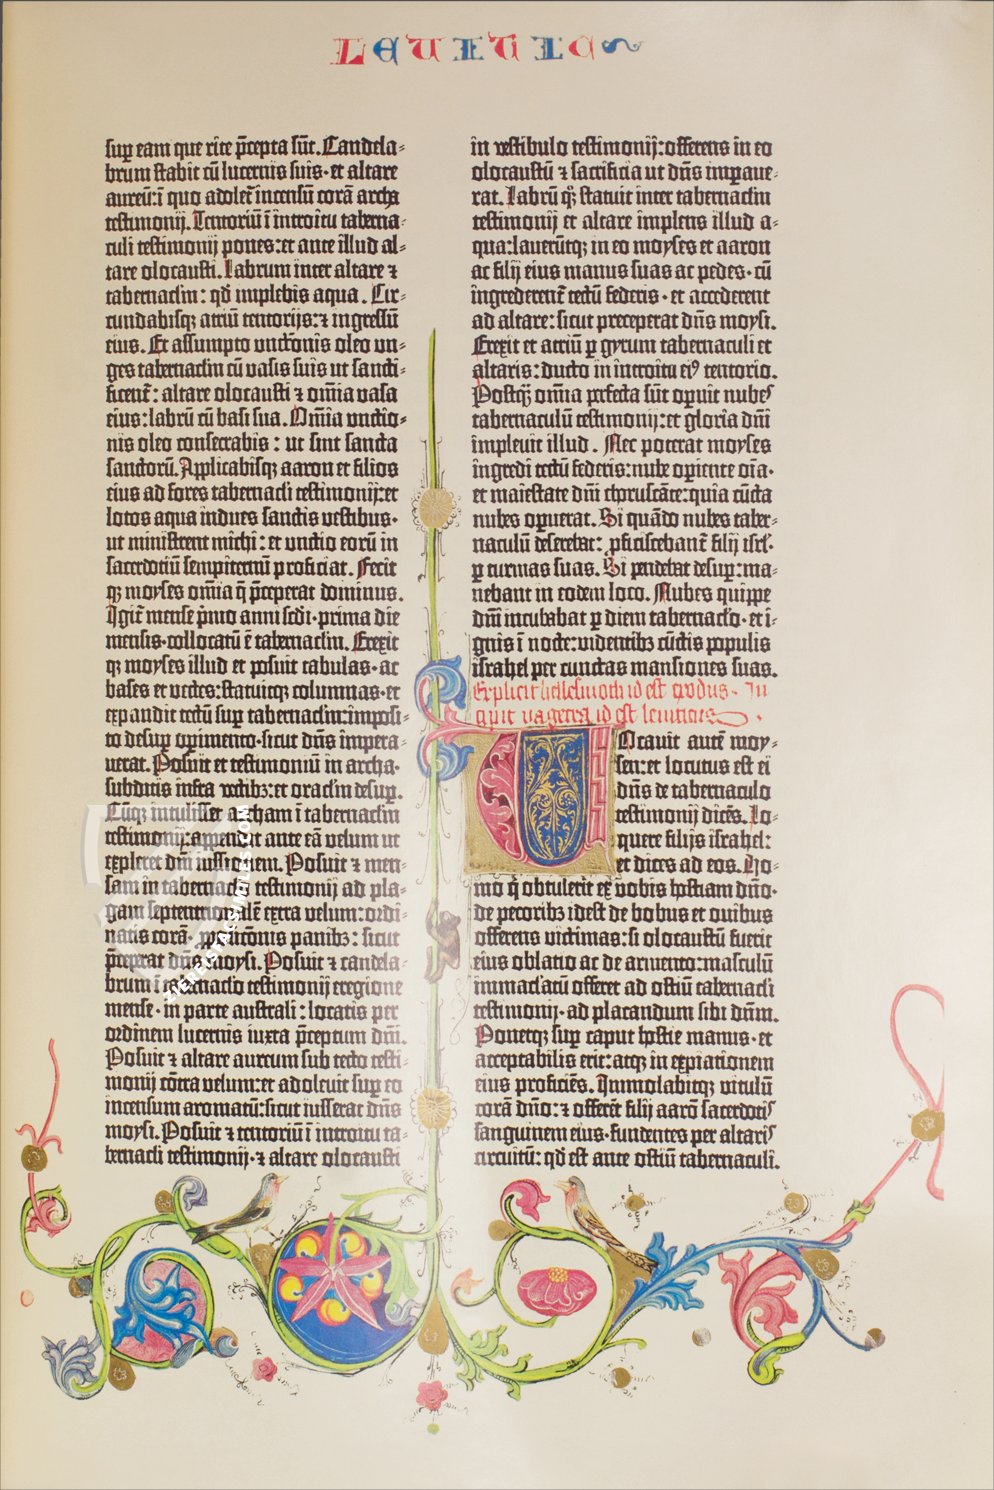 LEVITIC
sup eam que rite p̄cepta sūt. Candela⸗
brum stabit cū lucernis suis· et altare
aureū: ī quo adoleť incensū corā archa
testimonij. Tentoriū ī introitu taberna⸗
culi testimonij pones: et ante illud al⸗
tare olocausti. Labrum inter altare ⁊
tabernaclm̄: qd̄ implebis aqua. Cir⸗
cundabisqꝫ atriū tentorijs: ⁊ ingressū
eius. Et assumpto unctōnis oleo un⸗
ges tabernaclm̄ cū vasis suis ut sancti⸗
ficent᷑: altare olocausti ⁊ om̄ia vasa
eius: labrū cū basi sua. Om̄ia unctio⸗
nis oleo consecrabis: ut sint sancta
sanctorū. Applicabisqꝫ aaron et filios
eius ad fores tabernacli testimonij: et
lotos aqua indues sanctis vestibus·
ut ministrent michi: et unctio eorū in
sacerdotiū sempiternū proficiat. Fecit
qꝫ moyses om̄ia q̄ p̄ceperat dominus.
Igit᷑ mense p̄mo anni scd̄i· prima die
mensis· collocatū ē tabernaclm̄. Erexit
qꝫ moyses illud et posuit tabulas· ac
bases et vectes: statuitqꝫ columnas· et
expandit tectū sup tabernaclm̄: imposi⸗
to desup operimento· sicut dn̄s impera⸗
uerat. Posuit et testimoniū in archa·
subditis infra vectibꝫ: et oraclm̄ desup.
Cūqꝫ intulisset archam ī tabernaclm̄
testimonij: appendit ante eā velum ut
expleret dn̄i iussionem. Posuit ⁊ men⸗
sam in tabernaclo testimonij ad pla⸗
gam septentrionalē extra velum: ordi⸗
natis corā ꝓpositiōnis panibꝫ: sicut
p̄ceperat dn̄s moysi. Posuit ⁊ candela⸗
brum ī tabernaclo testimonij eregione
mense· in parte australi: locatis per
ordinem lucernis iuxta p̄ceptum dn̄i.
Posuit ⁊ altare aureum sub tecto testi⸗
monij cōtra velum: et adoleuit sup eo
incensum aromatū: sicut iusserat dn̄s
moysi. Posuit ⁊ tentoriū ī introitu ta⸗
bernacli testimonij· ⁊ altare olocausti
in vestibulo testimonij: offerens in eo
olocaustū ⁊ sacrificia ut dn̄s impaue⸗
rat. Labrū qꝫ statuit inter tabernaclm̄
testimonij et altare implens illud a⸗
qua: lauerūtqꝫ in eo moyses et aaron
ac filij eius manus suas ac pedes· cū
ingrederent᷑ tectū federis· et accederent
ad altare: sicut preceperat dn̄s moysi.
Erexit et atriū ꝑ gyrum tabernaculi et
altaris: ducto in introitu eiꝰ tentorio.
Postqꝫ om̄ia perfecta sūt operuit nubes
tabernaculū testimonij: et gloria dn̄i
impleuit illud. Nec poterat moyses
ingredi tectū federis: nube operiente oīa·
et maiestate dn̄i choruscāte: quia cūcta
nubes operuerat. Si quādo nubes taber⸗
naculū deserebat: ꝓficiscebant᷑ filij isrl·
ꝑ turmas suas. Si pendebat desup: ma⸗
nebant in eodem loco. Nubes quippe
dn̄i incubabat ꝑ diem tabernaclo· et i⸗
gnis ī nocte: videntibꝫ cūctis populis
israhel per cunctas mansiones suas.
Explicit hellesmoth id est exodus. In
cipit vagetra id est leuiticus.
Vocauit autē moy⸗
sen: et locutus est ei
dn̄s de tabernaculo
testimonij dicēs. Lo⸗
quere filijs israhel:
et dices ad eos. Ho⸗
mo q̄ obtulerit ex vobis hostiam dn̄o·
de pecoribꝫ idest de bobus et ouibus
offerens victimas: si olocaustū fuerit
eius oblatio ac de armento: masculū
immaclatū offeret ad ostiū tabernacli
testimonij· ad placandum sibi dn̄m.
Ponetqꝫ sup caput hostie manus· et
acceptabilis erit: atqꝫ in expiationem
eius proficiēs. Immolabitqꝫ vitulū
corā dn̄o: ⁊ offerēt filij aarō sacerdotis
sanguinem eius· fundentes per altaris
circuitū: qd̄ est ante ostiū tabernaculi.